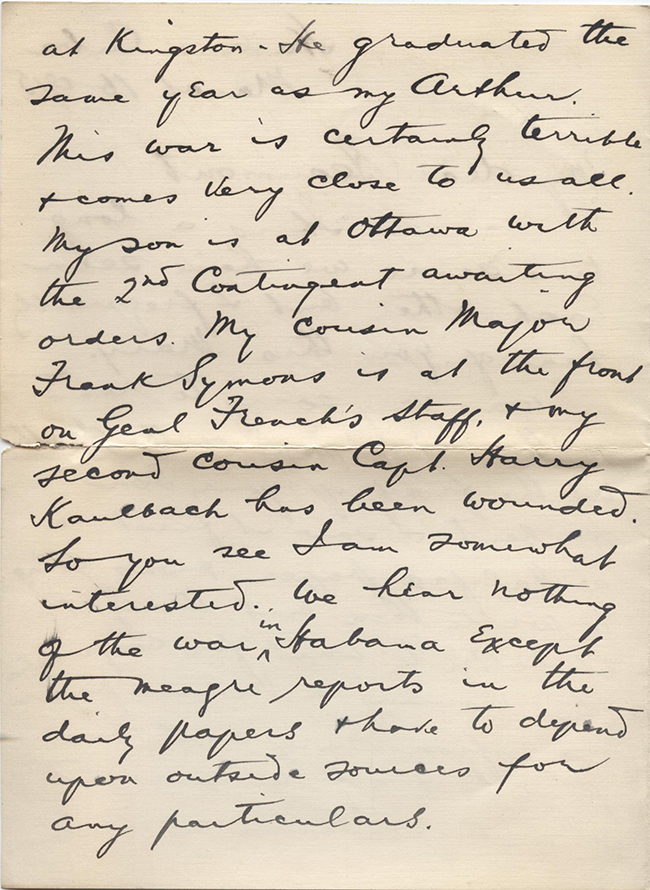 at Kingston - He graduated the
same year as my Arthur.
This war is certainly terrible
& comes very close to us all.
My son is at Ottawa with
the 2nd Contingent awaiting
orders. My cousin Major
Frank Symons is at the front
on Genl French's staff, & my
second cousin Capt. Harry
Kaulbach has been wounded.
So you see I am somewhat
interested. We hear nothing
of the war in Habana Except
the meagre reports in the
daily papers & have to depend
upon outside sources for
any particulars.